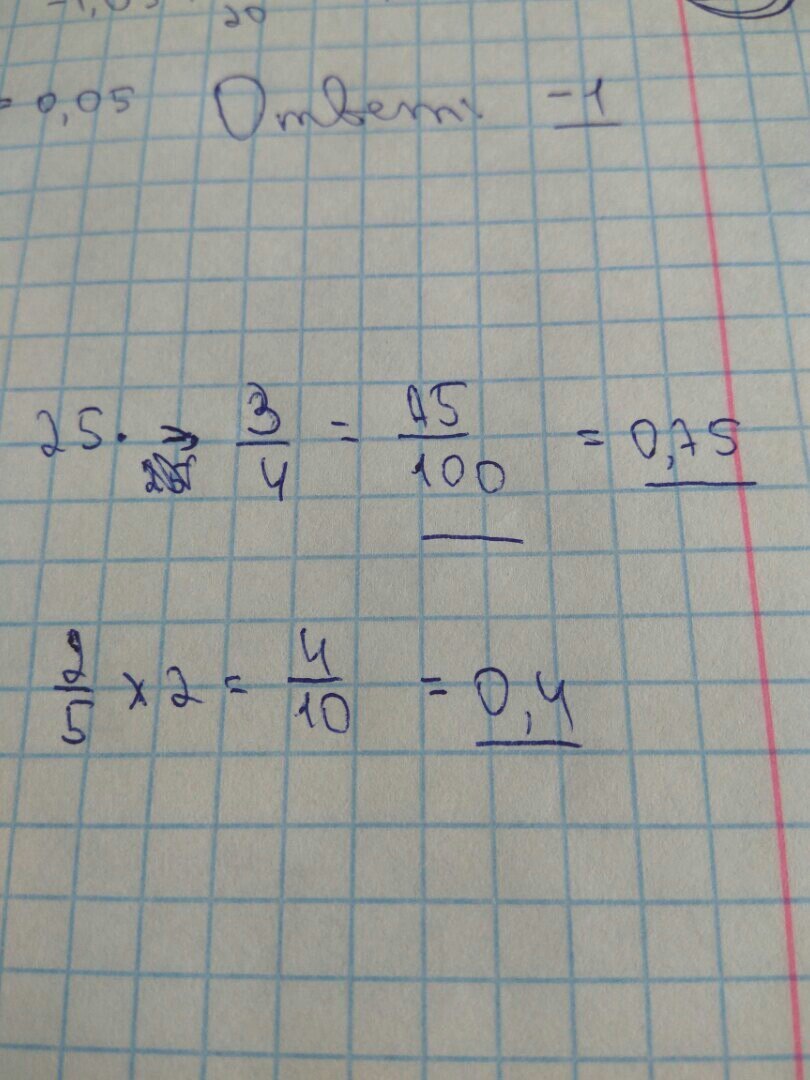 20
= 0,05 Ответ: -1
25 · 3/4 = 75/100 = 0,75
2/5 × 2 = 4/10 = 0,4